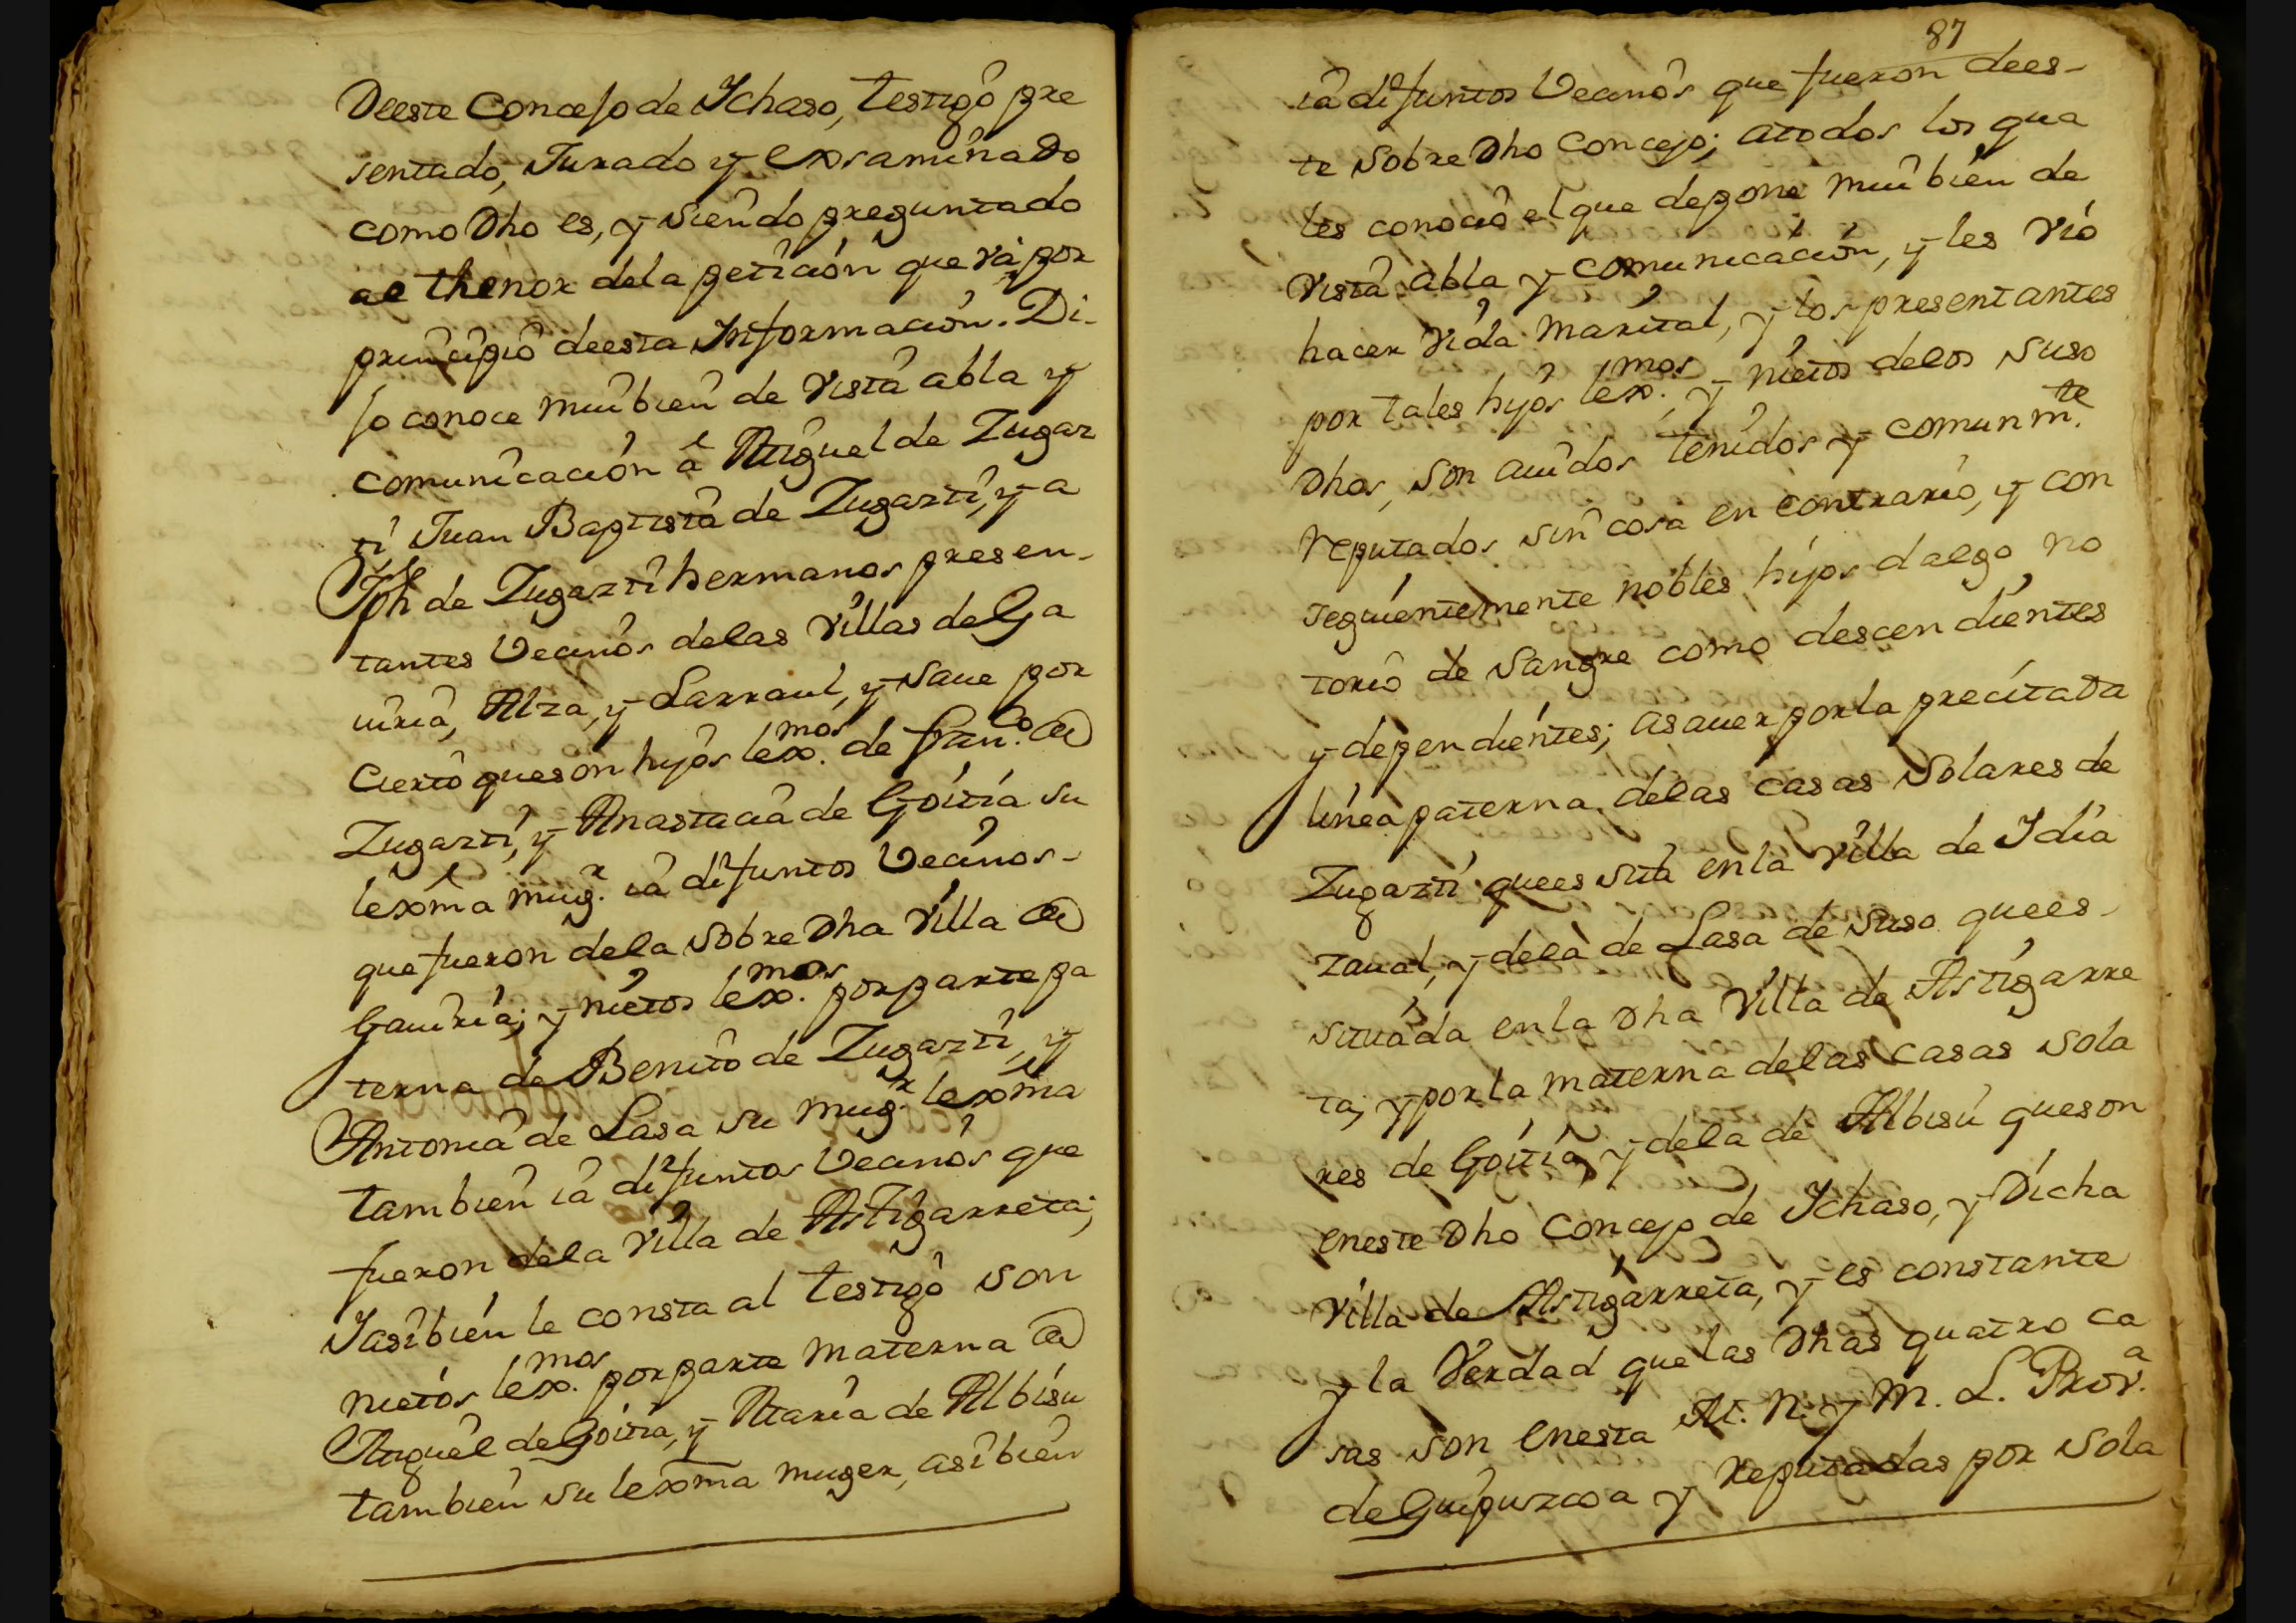 Deeste Concejo de Ychaso, testigo pre
sentado, Jurado y exsaminado
como Dho es, y siendo preguntado
al thenor dela petición que vá por
principio deesta Información. Di-
jo conoce mui bien de vista abla y
comunicación â Miguel de Zugaz
ti Juan Baptista de Zugazti, y a
Jph de Zugazti hermanos presen-
tantes vecinos delas villas de Ga
uiria, Alza, y Larraul, y saue por
Cierto queson hijos lex.mos de fran.co @
Zugazti, y Anastacia de Goitia su
lexma mug.r ia difuntos vecinos-
que fueron dela sobre Dha villa @
Gauiria; y nietos lex.mos por parte pa
terna de Benito de Zugazti, y
Antonia de Lasa su mug.r lexma
tambien ia difuntos vecinos que
fueron dela villa de Astigarreta;
Yasibien le consta al testigo son
nietos lex.mos por parte materna @
Miguel de Goitia, y Maria de Albisu
tambien su lexma muger, asibien
87
ia difuntos vecinos que fueron dees-
te sobre Dho concejo; atodos los qua
les conocio el que depone mui bien de
vista abla y comunicación, y les vio
hacer vida marital, y los presentantes
por tales hijos lex.mos, y nietos delos suso
Dhos, son auidos tenidos y comunm.te
reputados sin cosa en contrario, y con
seguientemente nobles hijos dalgo no
torio de sangre como descendientes
y dependientes; asauer por la precitada
linea paterna delas casas solares de
Zugazti quees sita en la villa de Idia
zaual, y dela de Lasa de suso quees-
situada en la Dha villa de Astigarre
ta; y por la materna delas casas sola
res de Goitia, y dela de Albisu queson
eneste Dho concejo de Ychaso, y Dicha
villa de Astigarreta, y es constante
y la verdad que las Dhas quatro ca
sas son enesta M. N. y M. L. Prov.a
de Guipuzcoa y reputadas por sola